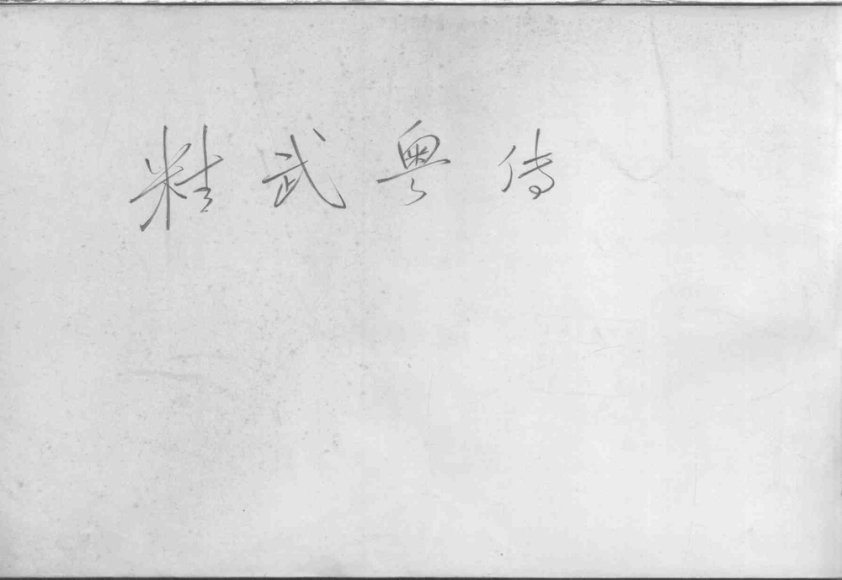 精武粤传